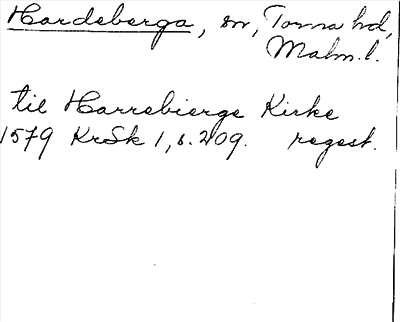 Hardeberga, sn, Torna hd,
Malm.l.
til Harrebierge Kirke
1579 KrSk 1, s. 209. regest.